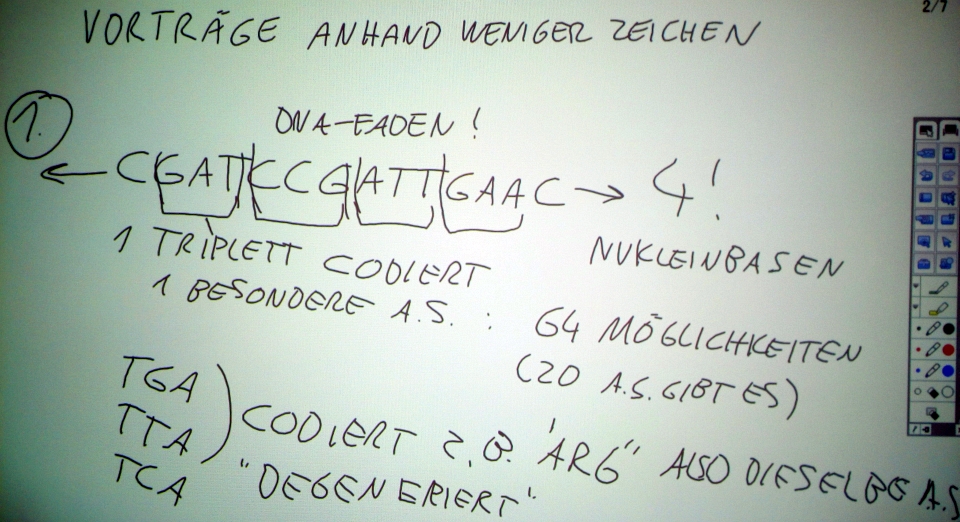 2/7
VORTRÄGE ANHAND WENIGER ZEICHEN
1.
DNA-FADEN!
← CGAT|CCG|ATT|GAAC → 4!
NUKLEINBASEN
1 TRIPLETT CODIERT
1 BESONDERE A.S. : 64 MÖGLICHKEITEN
(20 A.S. GIBT ES)
TGA
TTA
TCA
CODIERT z.B. "ARG" ALSO DIESELBE A.S
"DEGENERIERT"